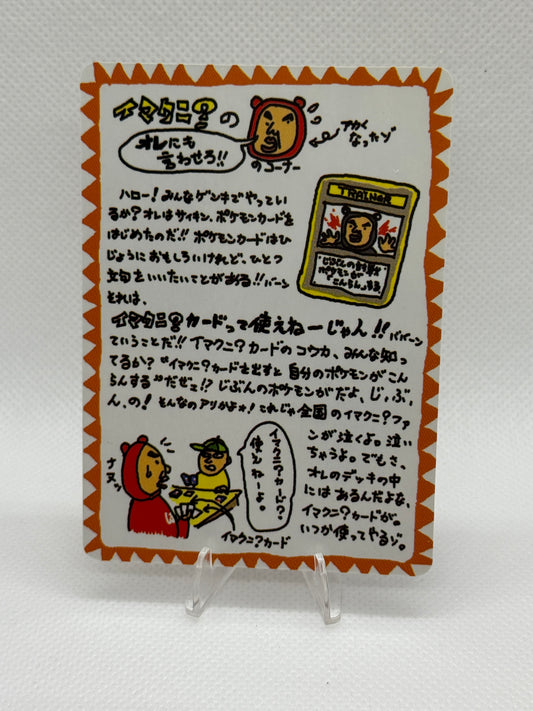 イマクニ?の
オレにも
言わせろ!!
のコーナー
アカく
なったゾ
ハロー!みんなゲンキでやってい
るか?オレはサイキン、ポケモンカードを
はじめたのだ!!ポケモンカードはひ
じょうにおもしろいけれど、ひとつ
文句をいいたいことがある!!バーン
それは、
イマクニ?カードって使えねーじゃん!!ババーン
ていうことだ!!イマクニ?カードのコウカ、みんな知っ
てるか?“イマクニ?カードを出すと自分のポケモンがこん
らんする”だぜェ!?じぶんのポケモンがだよ、じ、ぶ、
ん、の!そんなのアリかよォ!これじゃ全国のイマクニ?ファ
ンが泣くよ。泣い
ちゃうよ。でもさ、
オレのデッキの中
にはあるんだよな、
イマクニ?カードが。
いつか使ってやるゾ。
TRAINER
じぶんの
ポケモンが
こんらんする
イマクニ?カード?
使えねーよ。
ナヌッ
イマクニ?カード